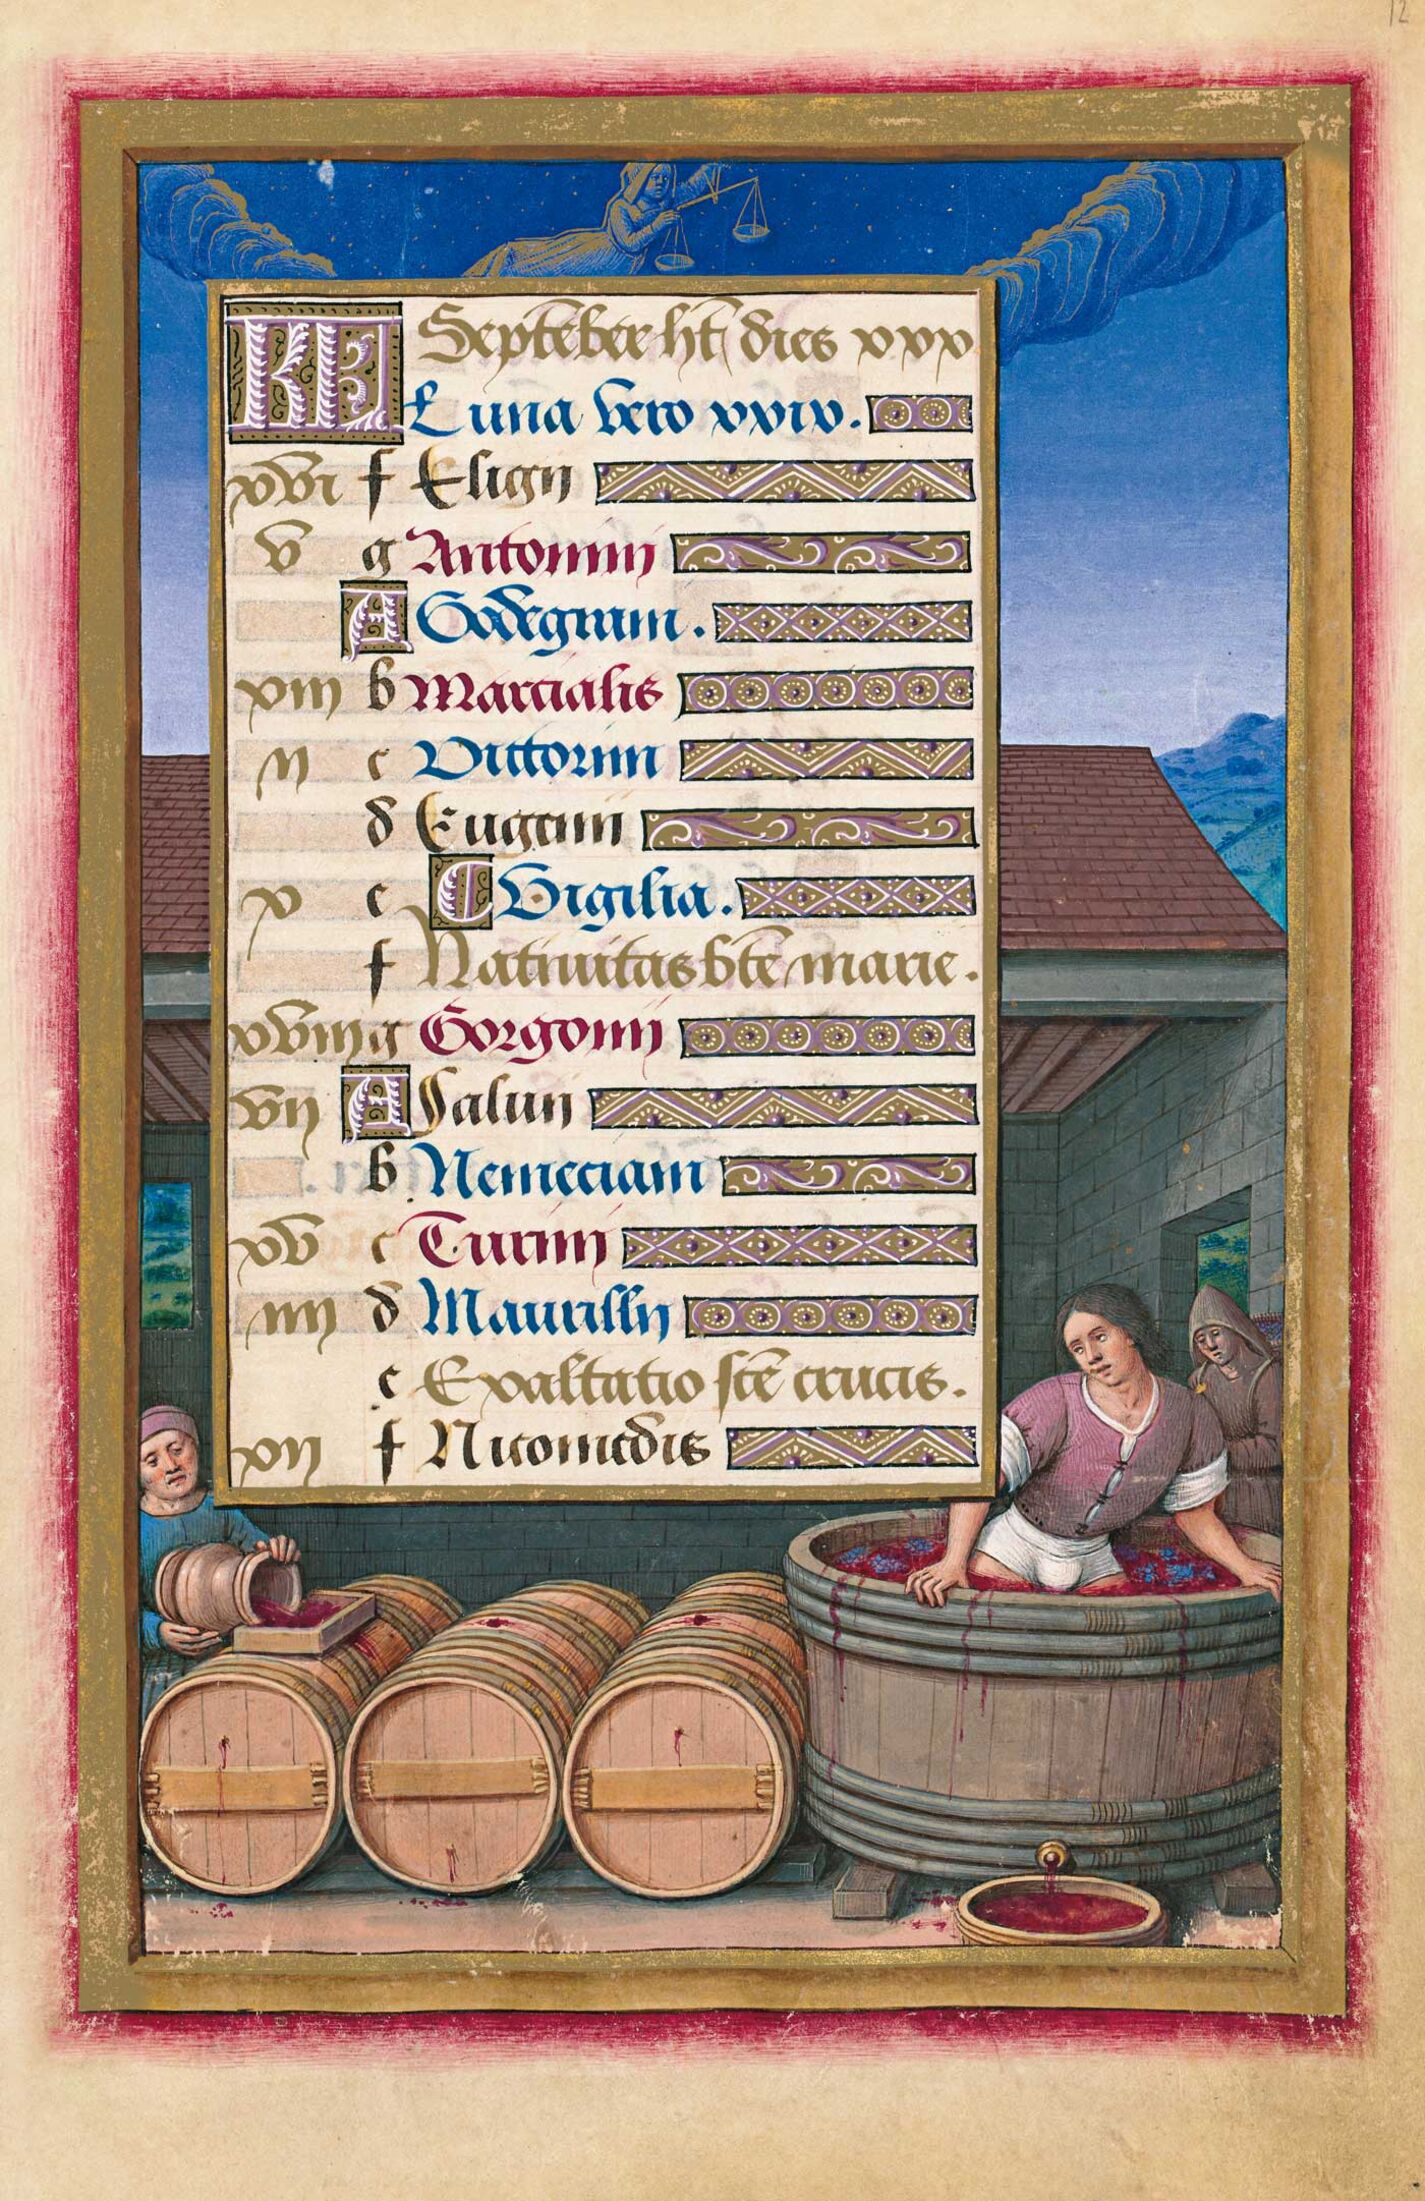 12
KL Septēber ht dies xxx
Luna vero xxix.
xvi f Eligii
v g Antonini
A Godegrani.
xiii b Marcialis
ii c Victorini
d Eugenii
x e Vigilia.
f Natiuitas bte marie.
xviii g Gorgonii
vii A Saluii
b Nemeciani
xv c Turini
iiii d Maurilii
e Exaltatio scē crucis.
xii f Nicomedis